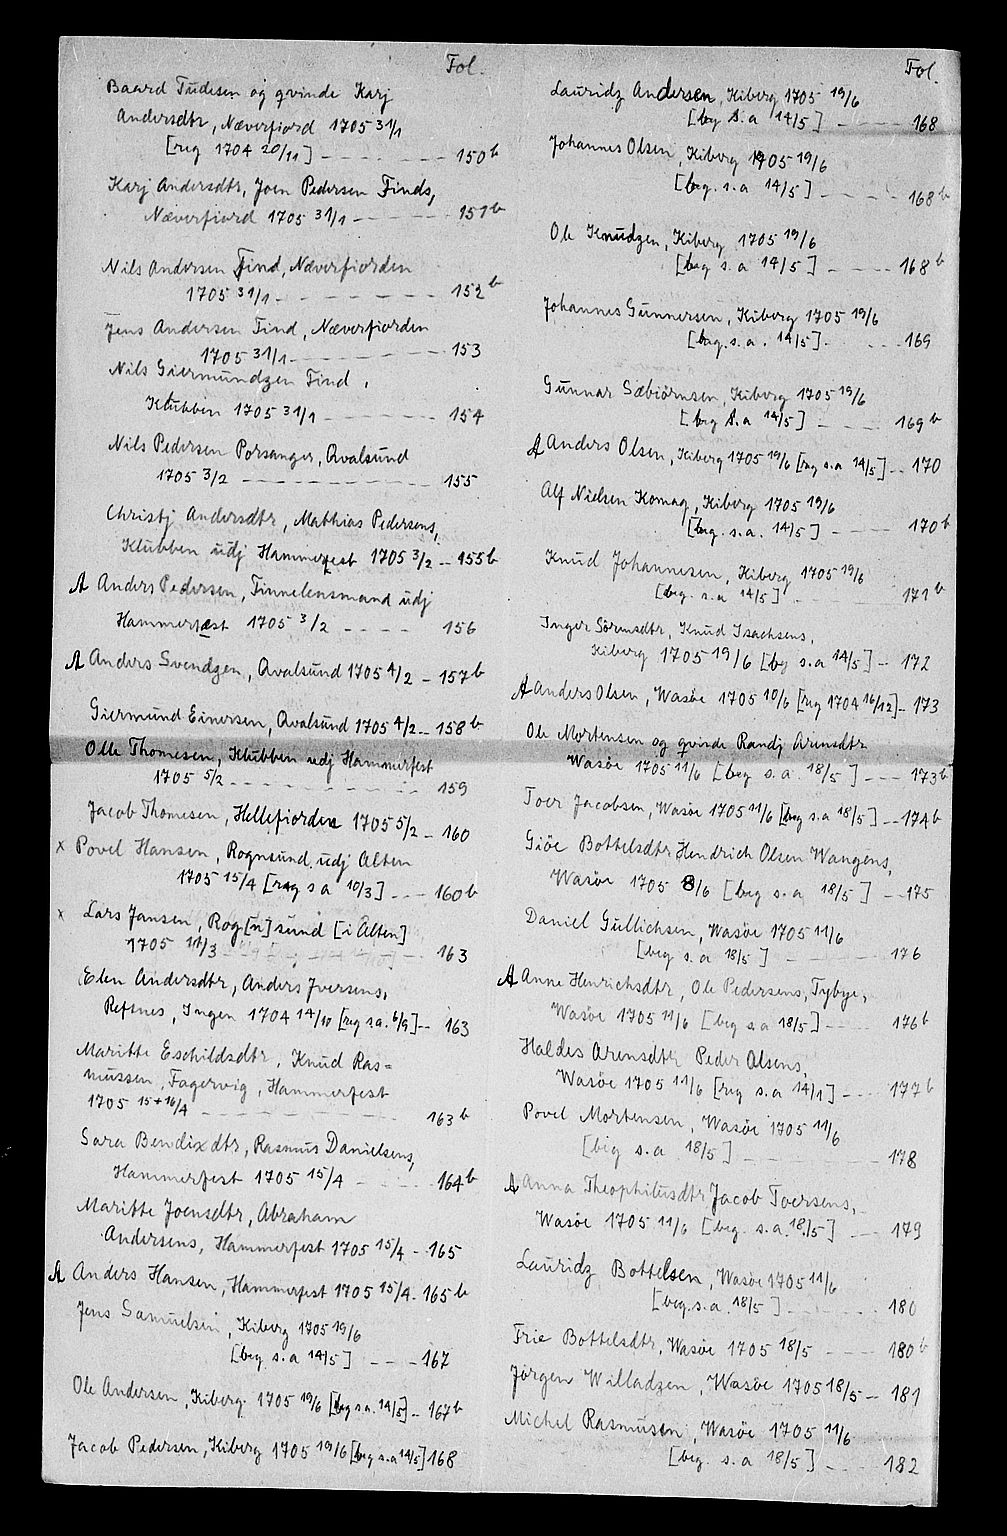 Fol.
Baard Tudesen og qvinde Karj
Andersdtr, Næverfiord 1705 31/1
[reg 1704 20/11] - - - - - - 150b
Karj Andersdtr, Joen Pedersen Finds,
Næverfiord 1705 31/1 - - - - - 151b
Nils Andersen Find, Næverfiorden
1705 31/1 - - - - - - - 152b
Jens Andersen Find, Næverfiorden
1705 31/1 - - - - - - - 153
Nils Giermundzen Find,
Klubben 1705 31/1 - - - - - 154
Nils Pedersen Porsanger, Qvalsund
1705 3/2 - - - - - - - - 155
Christj Andersdtr, Mathias Pedersens,
Klubben udj Hammerfest 1705 3/2 - - 155b
A Anders Pedersen, Finnelensmand udj
Hammerfæst 1705 3/2 - - - - 156
A Anders Svendzen, Qvalsund 1705 4/2 - 157b
Giermund Einersen, Qvalsund 1705 4/2 - - 158b
Olle Thomesen, Klubben udj Hammerfest
1705 5/2 - - - - - - - - 159
Jacob Thomesen, Hellefiorden 1705 5/2 - 160
x Povel Hansen, Rognsund udj Alten
1705 15/4 [reg s a 10/3] - - - 160b
x Lars Jansen, Rog[n]sund [i Alten]
1705 11/3 - - - - - - - 163
Elen Andersdtr, Anders Jversens,
Refsnes, Ingen 1704 14/10 [reg s a. 6/9] - - 163
Maritte Eschildsdtr, Knud Ras=
mussen, Fagervig, Hammerfest
1705 15+16/4 - - - - - - - 163b
Sara Bendixdtr, Rasmus Danielsens,
Hammerfest 1705 15/4 - - - - - 164b
Maritte Joensdtr, Abraham
Andersens, Hammerfest 1705 15/4 - 165
A Anders Hansen, Hammerfest 1705 15/4 - 165b
Jens Samuelsen, Kiberg 1705 19/6
[beg s. a 14/5] - - - 167
Ole Andersen, Kiberg 1705 19/6 [beg s a. 14/5] - 167b
Jacob Pedersen, Kiberg 1705 19/6 [beg s. a 14/5] 168
Fol.
Lauridz Andersen, Kiberg 1705 19/6
[beg s. a 14/5] - - - - 168
Johannes Olsen, Kiberg 1705 19/6
[beg. s. a 14/5] - - - - - 168b
Ole Knudzen, Kiberg 1705 19/6
[beg s. a 14/5] - - - - 168b
Johannes Gunnersen, Kiberg 1705 19/6
[beg. s. a. 14/5] - - - - 169
Gunnar Sæbiörnsen, Kiberg 1705 19/6
[beg s. a 14/5] - - - - 169b
A Anders Olsen, Kiberg 1705 19/6 [beg s. a 14/5] - - 170
Alf Nielsen Komag, Kiberg 1705 19/6
[beg. s. a. 14/5] - - - - 170b
Knud Johannesen, Kiberg 1705 19/6
[beg. s. a 14/5] - - - - - 171b
Inger Sörensdtr, Knud Isachsens,
Kiberg 1705 19/6 [beg s. a 14/5] - 172
A Anders Olsen, Wasöe 1705 10/6 [reg 1704 16/12] - 173
Ole Mortensen og qvinde Randj Arensdtr
Wasöe 1705 11/6 [beg s. a. 18/5] - - - 173b
Toer Jacobsen, Wasöe 1705 11/6 [beg s. a 18/5] - - 174b
Giöe Bottelsdtr Hendrich Olsen Wangens,
Wasöe 1705 8/6 [beg s. a 18/5] - - 175
Daniel Gullichsen, Wasöe 1705 11/6
[beg s. a 18/5] - - - - - 176
A Anne Henrichsdtr, Ole Pedersens, Tybye,
Wasöe 1705 11/6 [beg s a 18/5] - - - - 176b
Haldes Arensdtr Peder Olsens,
Wasöe 1705 11/6 [reg s. a 14/1] - - - - 177b
Povel Mortensen, Wasöe 1705 11/6
[beg s. a 18/5] - - - - - - 178
A Anna Theophilusdtr Jacob Toersens,
Wasöe 1705 11/6 [beg. s. a. 18/5] - - - 179
Lauridz Bottelsen, Wasöe 1705 11/6
[beg. s. a. 18/5] - - - - - 180
Frie Bottelsdtr, Wasöe 1705 18/5 - - - - 180b
Jörgen Willadzen, Wasöe 1705 18/5 - - 181
Michel Rasmusen, Wasöe 1705 11/6
[beg. s. a 18/5] - - - - 182